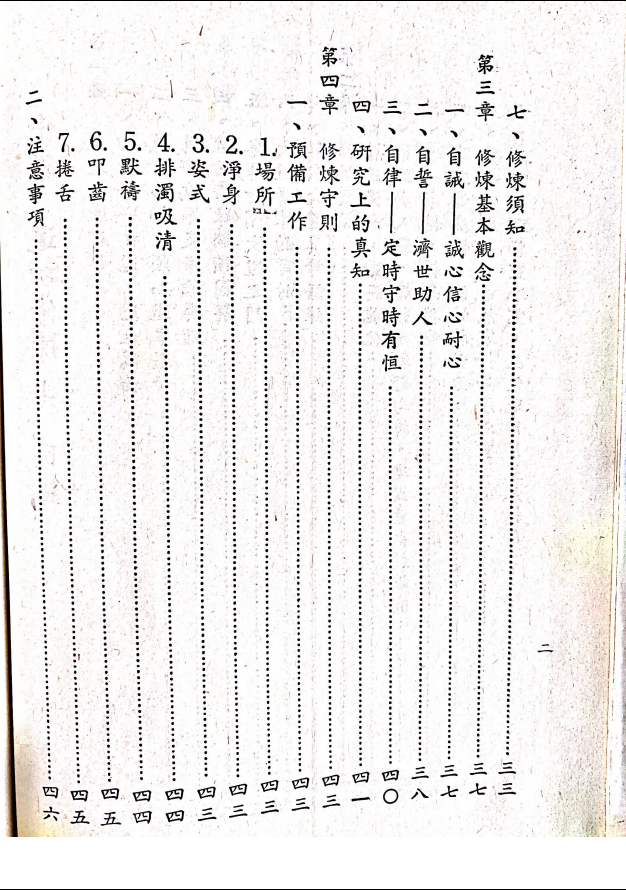 七、修煉須知……三三
第三章 修煉基本觀念……三七
一、自誠——誠心信心耐心……三七
二、自誓——濟世助人……三八
三、自律——定時守時有恒……四〇
四、研究上的真知……四一
第四章 修煉守則……四三
一、預備工作……四三
1.場所……四三
2.淨身……四三
3.姿式……四三
4.排濁吸清……四四
5.默禱……四四
6.叩齒……四五
7.捲舌……四五
二、注意事項……四六
二